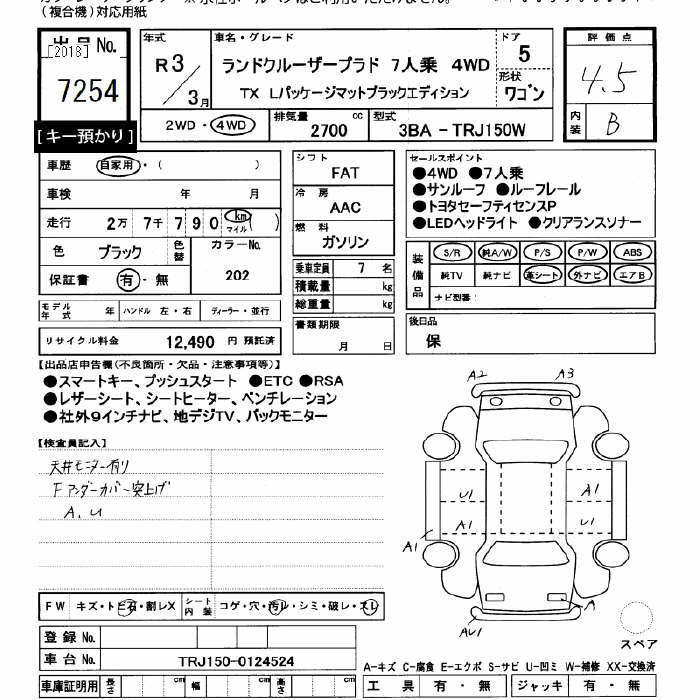 (複合機)対応用紙
出品No.
[2018]
7254
[キー預かり]
年式 車名・グレード ドア 評価点
R3/3月 ランドクルーザープラド 7人乗 4WD 5 4.5
TX Lパッケージマットブラックエディション 形状 ワゴン
2WD・4WD 排気量 2700 cc 型式 3BA-TRJ150W 内装 B
車歴 自家用・( )
車検 年 月
走行 2万 7千 7 9 0 km マイル ( )
色 ブラック 色替 カラーNo. 202
保証書 有・無
シフト FAT
冷房 AAC
燃料 ガソリン
乗車定員 7 名
積載量 kg
総重量 kg
書類期限 月 日
セールスポイント
●4WD ●7人乗
●サンルーフ ●ルーフレール
●トヨタセーフティセンスP
●LEDヘッドライト ●クリアランスソナー
装備品 S/R 純A/W P/S P/W ABS
純TV 純ナビ 革シート 外ナビ エアB
ナビ型番:
後日品
保
モデル年式 年 ハンドル 左・右 ディーラー・並行
リサイクル料金 12,490 円 預託済
【出品店申告欄(不良箇所・欠品・注意事項等)】
●スマートキー、プッシュスタート ●ETC ●RSA
●レザーシート、シートヒーター、ベンチレーション
●社外9インチナビ、地デジTV、バックモニター
【検査員記入】
天井モニター有り
Fアンダーカバー突上げ
A, U
A2 A3
U1 A1
A1 U1
A1
A
AU1
スペア
FW キズ・トビ石・割レX シート内装 コゲ・穴・汚レ・シミ・破レ・スレ
登録No.
車台No. TRJ150-0124524
車庫証明用 長さ cm 幅 cm 高さ cm
A-キズ C-腐食 E-エクボ S-サビ U-凹ミ W-補修 XX-交換済
工具 有・無 ジャッキ 有・無